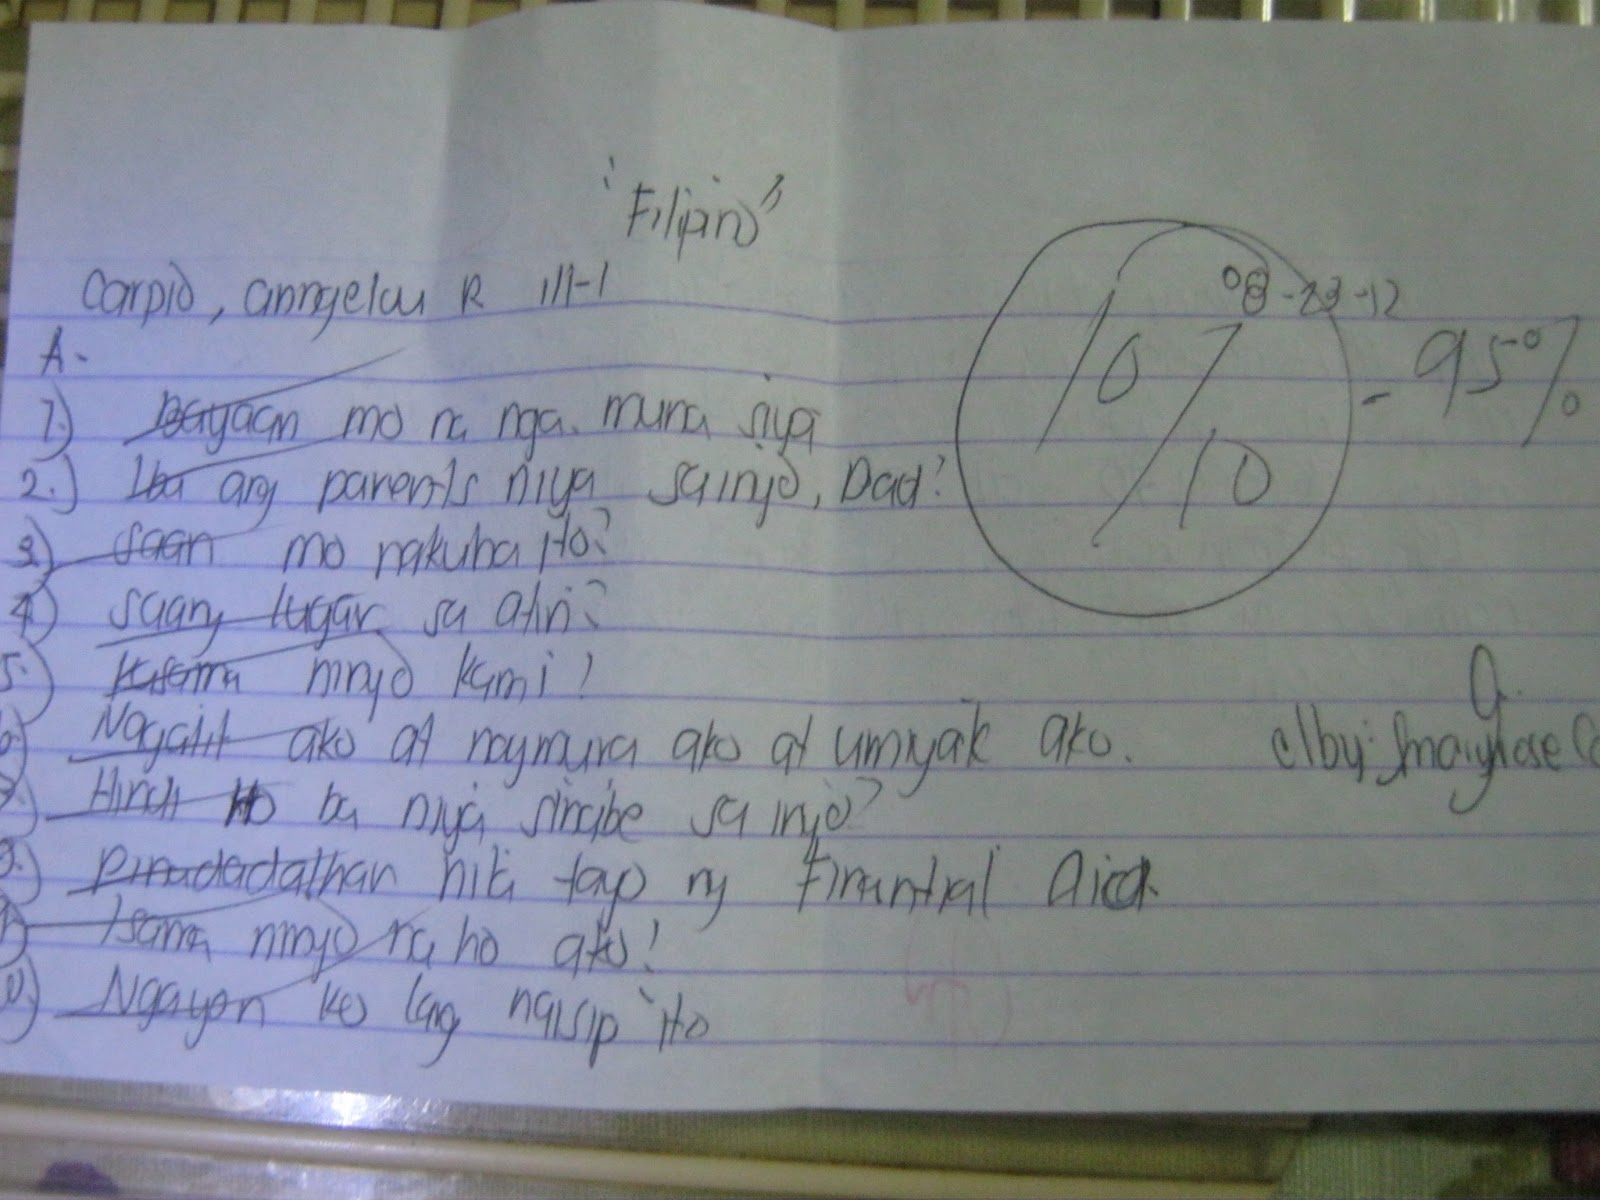 "Filipino"
Carpio, anngelou R III-1
08-23-12
A.
10/10 - 95%
1.) Bayaan mo na nga muna siya
2.) Iba ang parents niya sainyo, Dad?
3.) saan mo nakuha ito?
4.) saang lugar sa atin?
5.) Kasama ninyo kami!
6.) Nagalit ako at nagmura ako at umiyak ako.
c/by:
7.) Hindi ho ba niya sinabe sa inyo?
8.) Pinadadalhan nila tayo ng Financial Aid.
9.) Isama ninyo na ho ako!
10.) Ngayon ko lang naisip ito